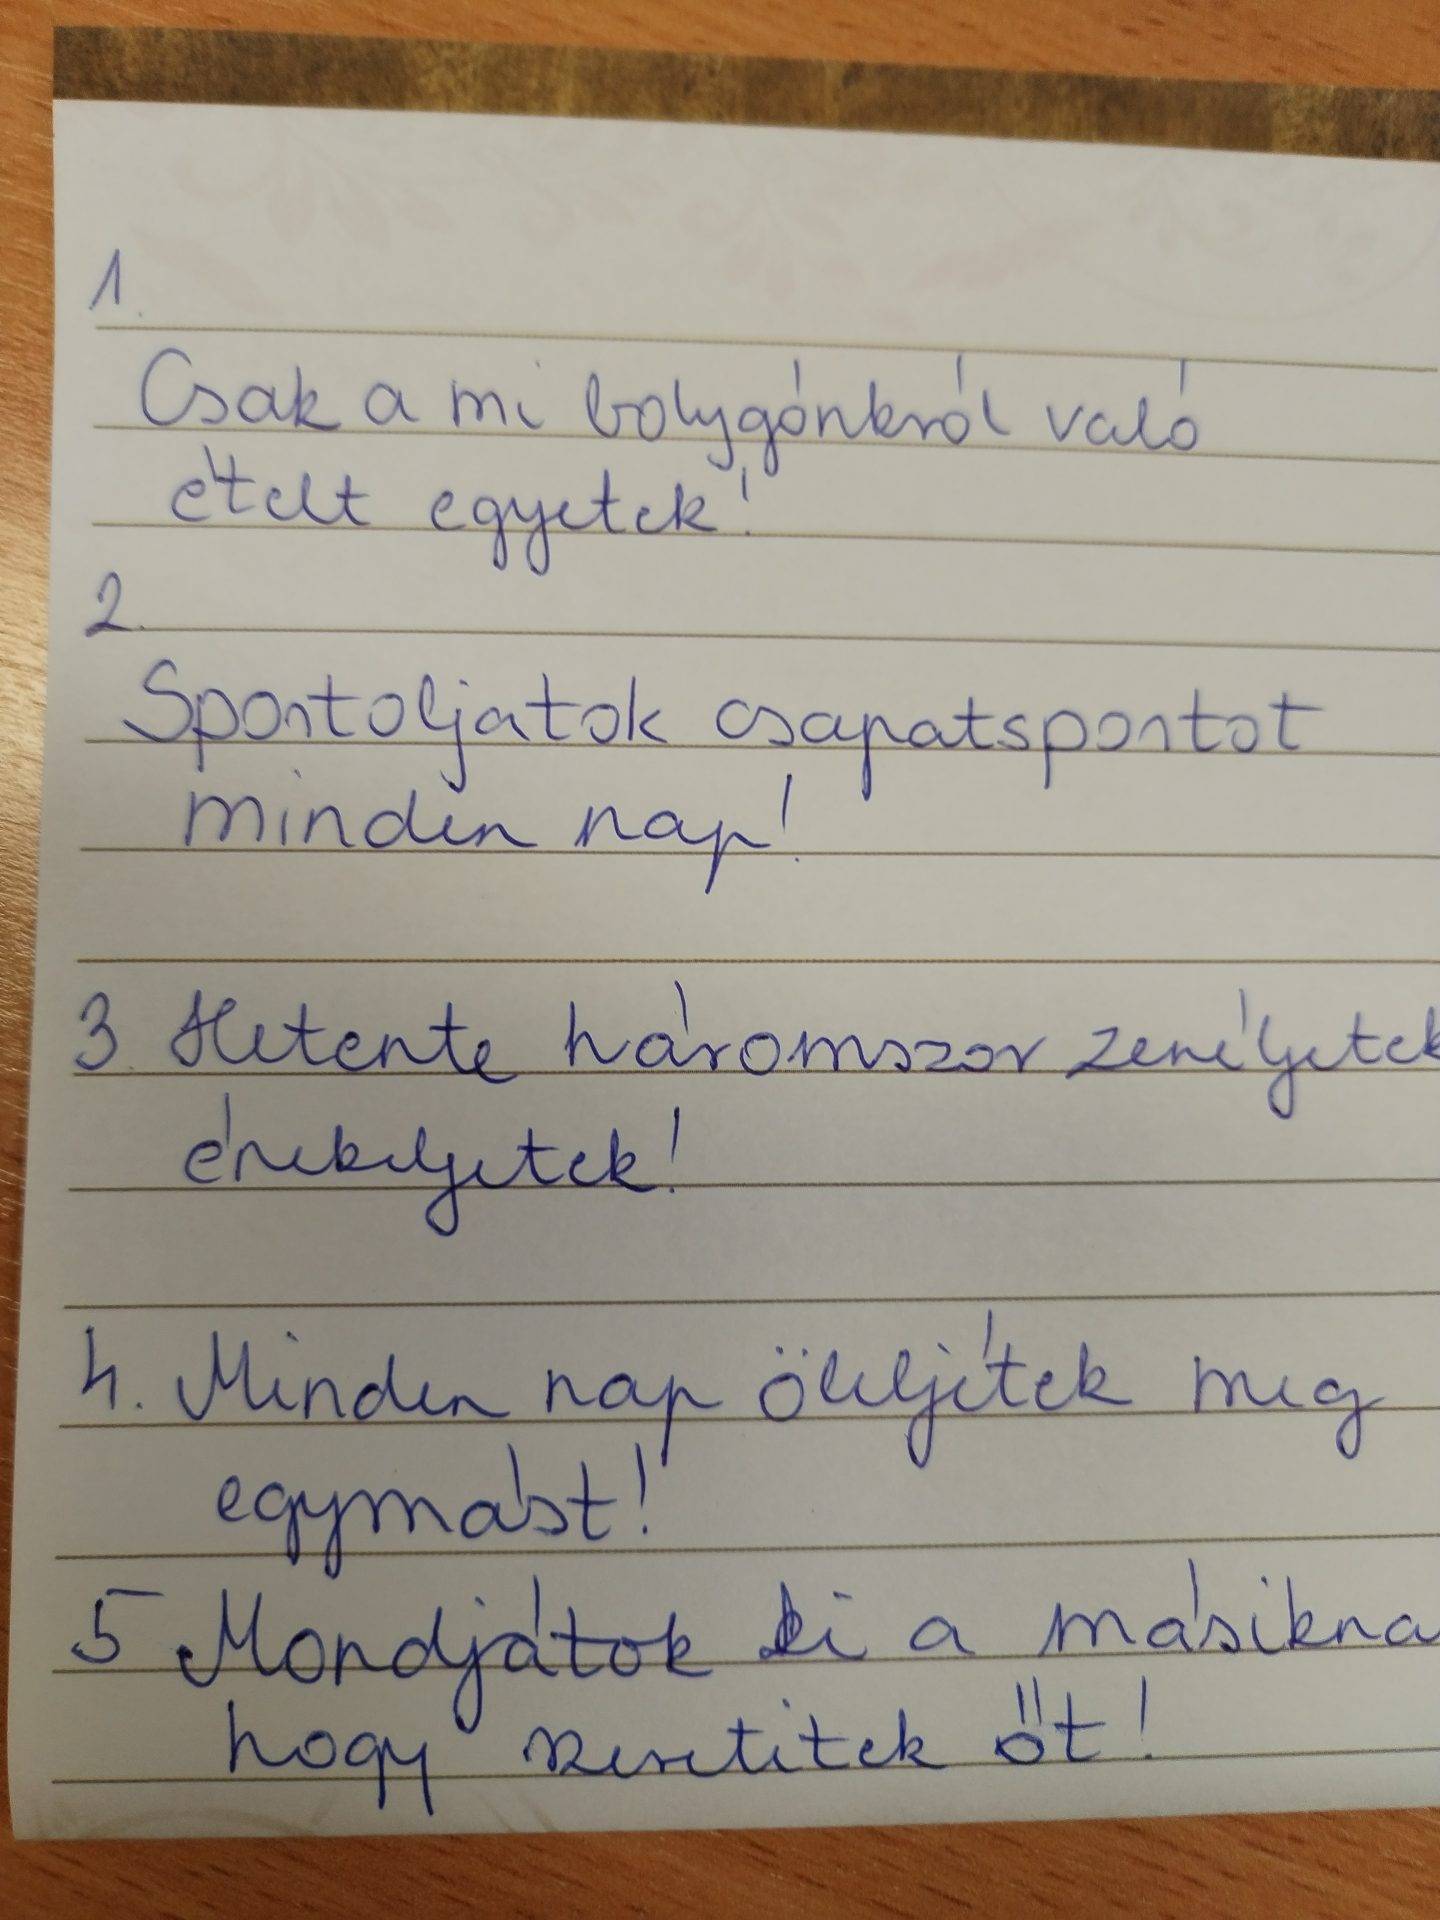 1.
Csak a mi bolygónkról való
ételt egyetek!
2.
Sportoljatok csapatsportot
minden nap!
3. Hetente háromszor zenéljetek
énekeljetek!
4. Minden nap öleljétek meg
egymást!
5 Mondjátok ki a másikna
hogy szeretitek őt!